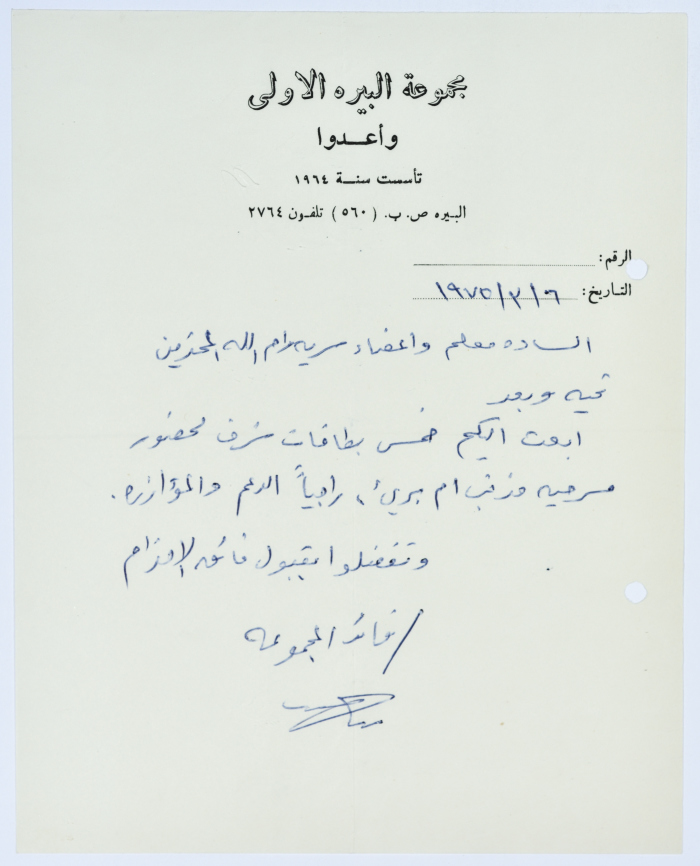 مجموعة البيره الاولى
وأعـــدوا
تأسست سنـــة ١٩٦٤
البيره ص. ب. ( ٥٦٠ ) تلفـون ٢٧٦٤
الرقم:
التـاريخ: ١٩٧٥/٣/٦
الساده معلم واعضاء سريه رام الله المحترمين
تحيه وبعد
ابعث اليكم خمس بطاقات شرف لحضور
مسرحيه مذنب ام بريء، راجياً الدعم والمؤازره.
وتفضلوا بقبول فائق الاحترام
/قائد المجموعه